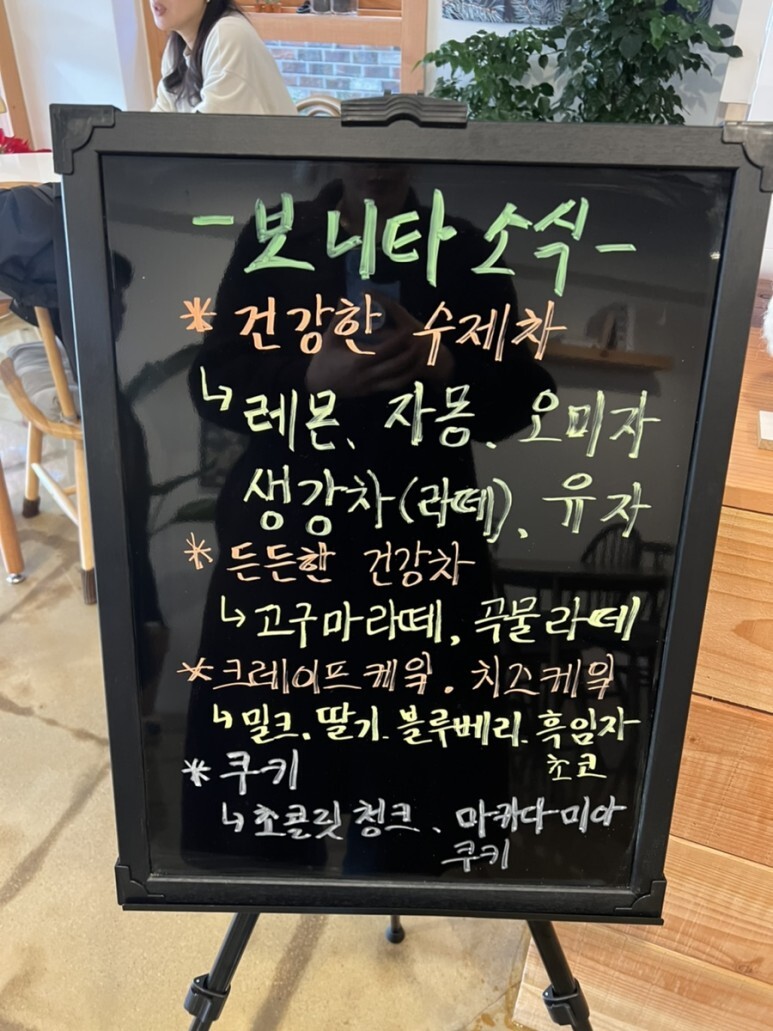 -보니타 소식-
* 건강한 수제차
↳ 레몬、자몽、오미자
생강차(라떼)、유자
* 든든한 건강차
↳ 고구마라떼, 곡물라떼
* 크레이프케잌. 치즈케잌
↳ 밀크. 딸기. 블루베리. 흑임자
초코
* 쿠키
↳ 초콜릿청크、마카다미아
쿠키